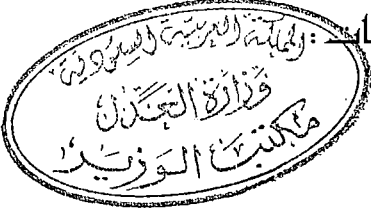 ات :
المملكة العربية السعودية
وزارة العدل
مكتب الوزير